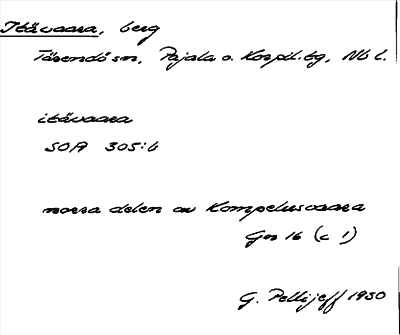 Itävaara, berg
Tärendö sn, Pajala o. Korpil. tg, Nb l.
itävaara
SOA 305:6
norra delen av Kompelusvaara
Gn 16 (c 1)
G. Pellijeff 1950